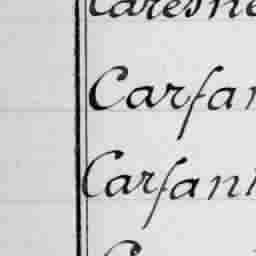 Caresne
Carfan
Carfann